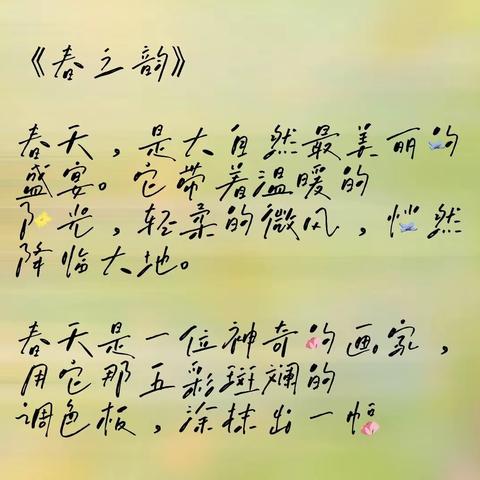 《春之韵》
春天，是大自然最美丽的
盛宴。它带着温暖的
阳光，轻柔的微风，悄然
降临大地。
春天是一位神奇的画家，
用它那五彩斑斓的
调色板，涂抹出一幅